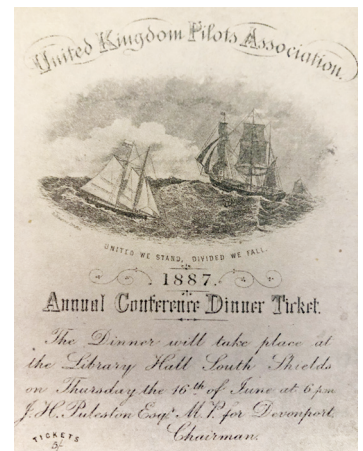 United Kingdom Pilots Association.
UNITED WE STAND, DIVIDED WE FALL.
1887.
Annual Conference Dinner Ticket.
The Dinner will take place at
the Library Hall South Shields
on Thursday the 16th of June at 6 p.m.
J. H. Puleston Esqr. M. P. for Devonport,
Chairman.
TICKETS
5/-